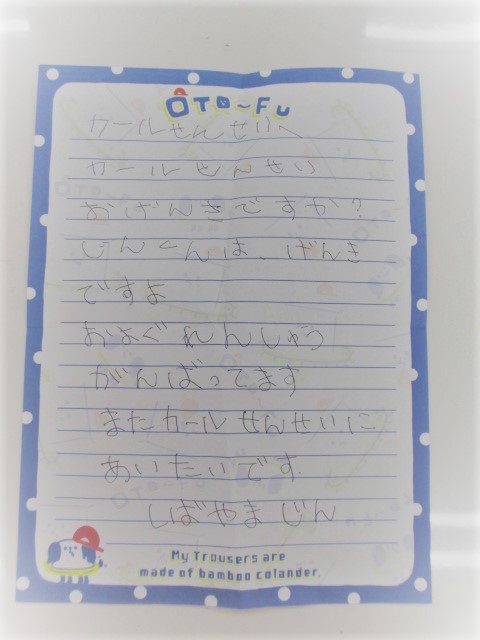 OTO~FU
カールせんせいへ
カールせんせい
おげんきですか?
じんくんは、げんき
ですよ
およぐれんしゅう
がんばってます
またカールせんせいに
あいたいです.
しばやまじん
My Trousers are
made of bamboo colander.